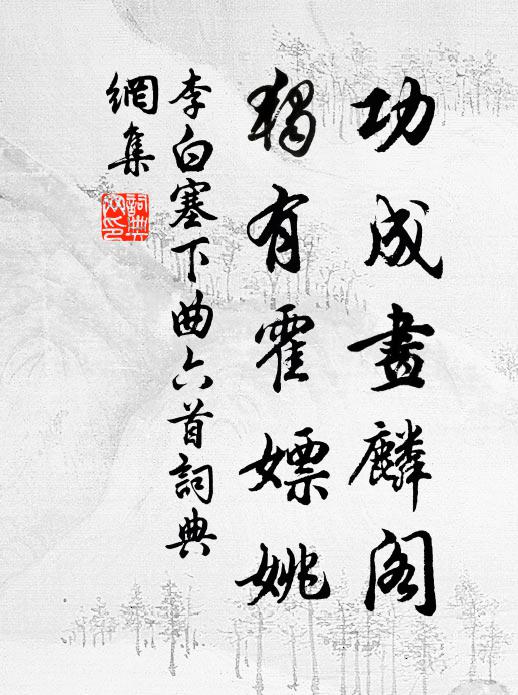 功成畫麟阁
獨有霍嫖姚
李白塞下曲六首詞典
網集
詞典網印